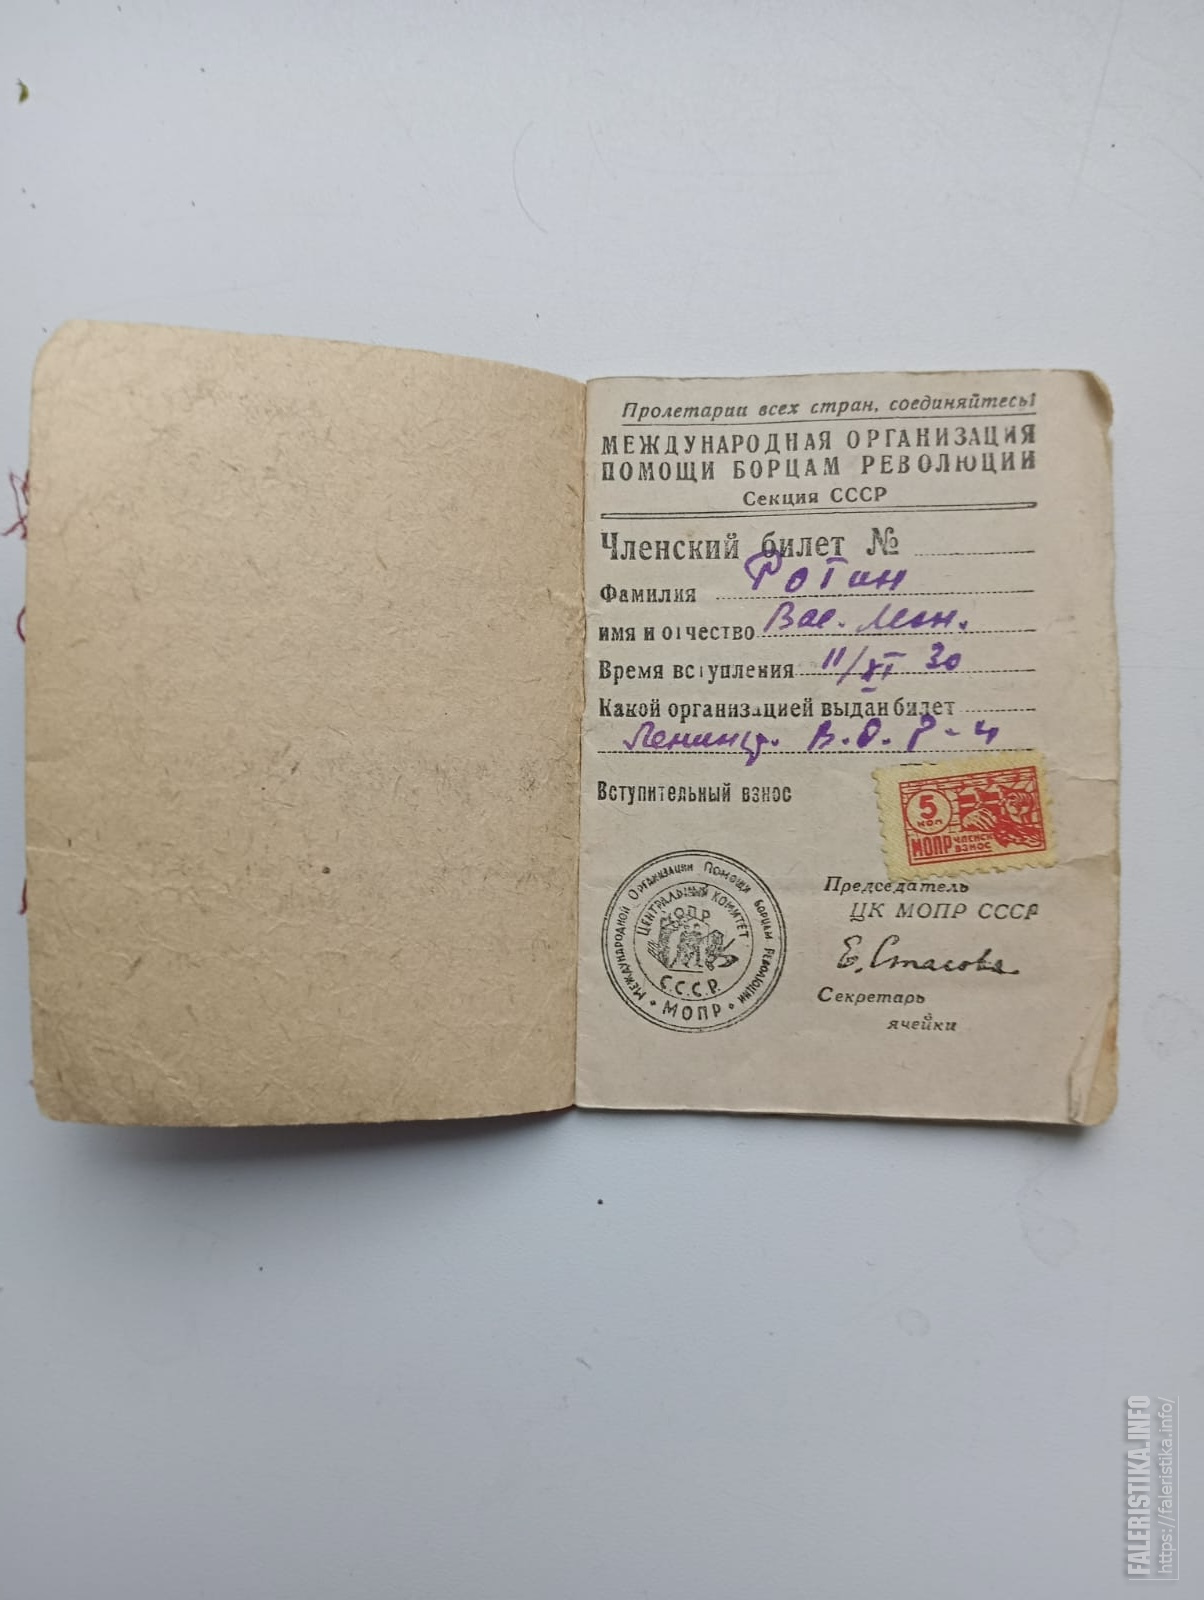 Пролетарии всех стран, соединяйтесь!
МЕЖДУНАРОДНАЯ ОРГАНИЗАЦИЯ
ПОМОЩИ БОРЦАМ РЕВОЛЮЦИИ
Секция СССР
Членский билет №
Фамилия Рогин
имя и отчество Вас. Леон.
Время вступления 11/XI 30
Какой организацией выдан билет
Ленингр. В.О.Р-н
Вступительный взнос
5 КОП
МОПР ЧЛЕНСК ВЗНОС
МЕЖДУНАРОДНОЙ ОРГАНИЗАЦИИ ПОМОЩИ БОРЦАМ РЕВОЛЮЦИИ
ЦЕНТРАЛЬНЫЙ КОМИТЕТ
МОПР
С.С.С.Р.
МОПР
Председатель
ЦК МОПР СССР
Е. Стасова
Секретарь
ячейки
FALERISTIKA.INFO
https://faleristika.info/